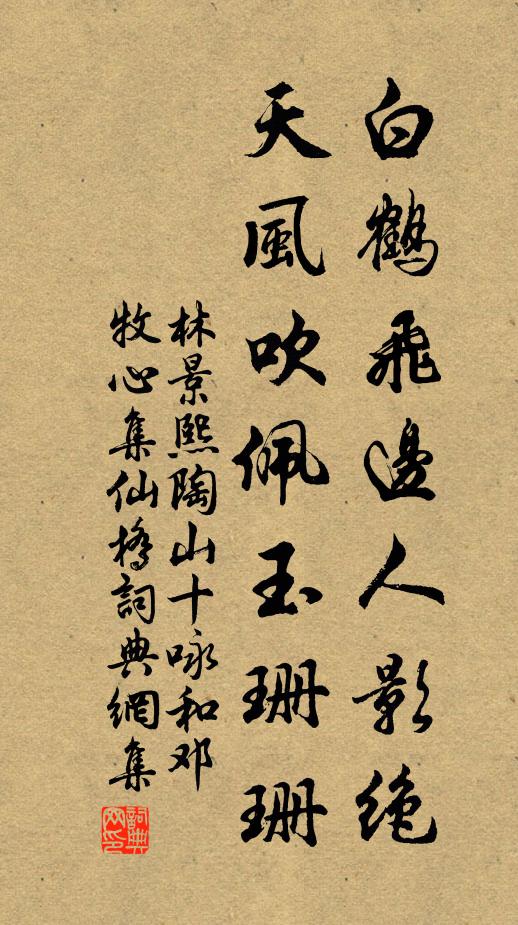 白鶴飛邊人影絶
天風吹佩玉珊珊
林景熙陶山十咏和邓
牧心集仙橋詞典網集
詞典网印